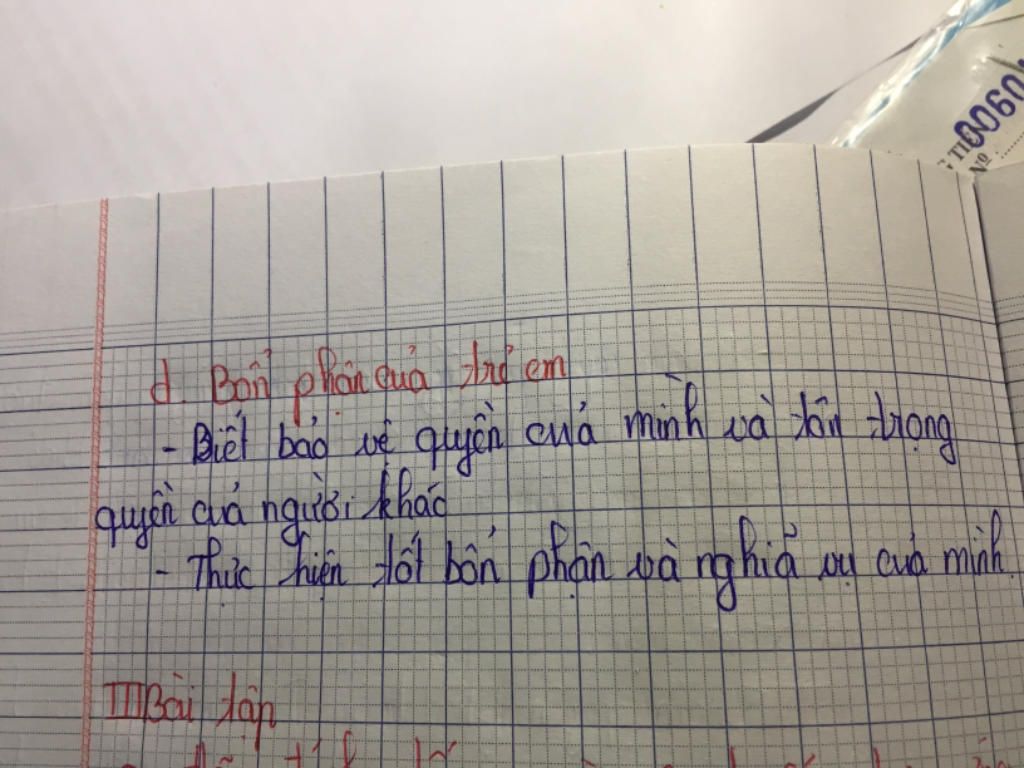 0060
TIE
Nº
d. Bổn phận của trẻ em
- Biết bảo vệ quyền của mình và tôn trọng
quyền của người khác
- Thực hiện tốt bổn phận và nghĩa vụ của mình
III Bài tập